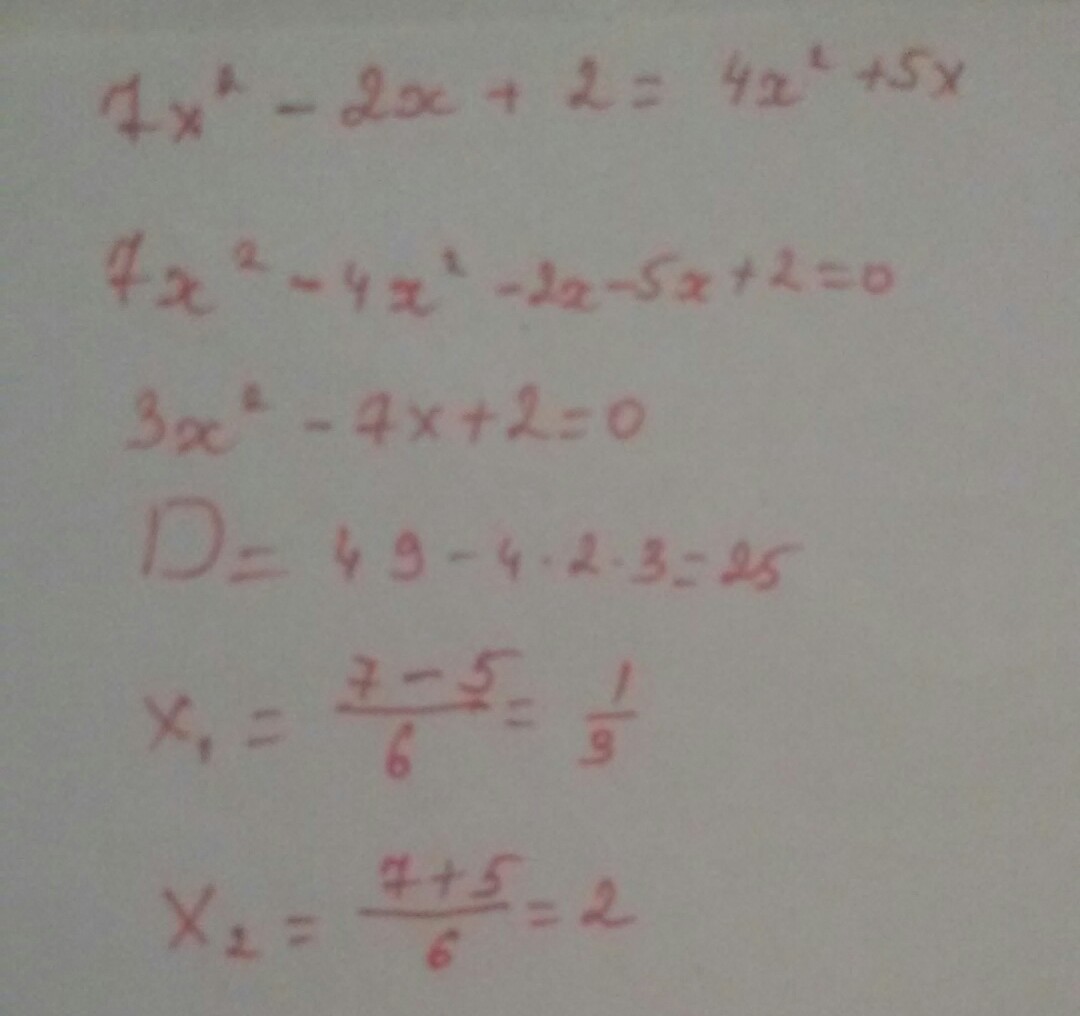 7x² - 2x + 2 = 4x² + 5x
7x² - 4x² - 2x - 5x + 2 = 0
3x² - 7x + 2 = 0
D = 49 - 4 · 2 · 3 = 25
x₁ = (7 - 5)/6 = 1/3
x₂ = (7 + 5)/6 = 2